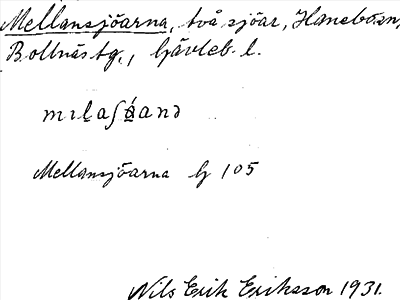 Mellansjöarna, två sjöar, Hanebo sn,
Bollnäs tg., Gävleb. l.
Mellansjöarna G 105
Nils Erik Eriksson 1931.